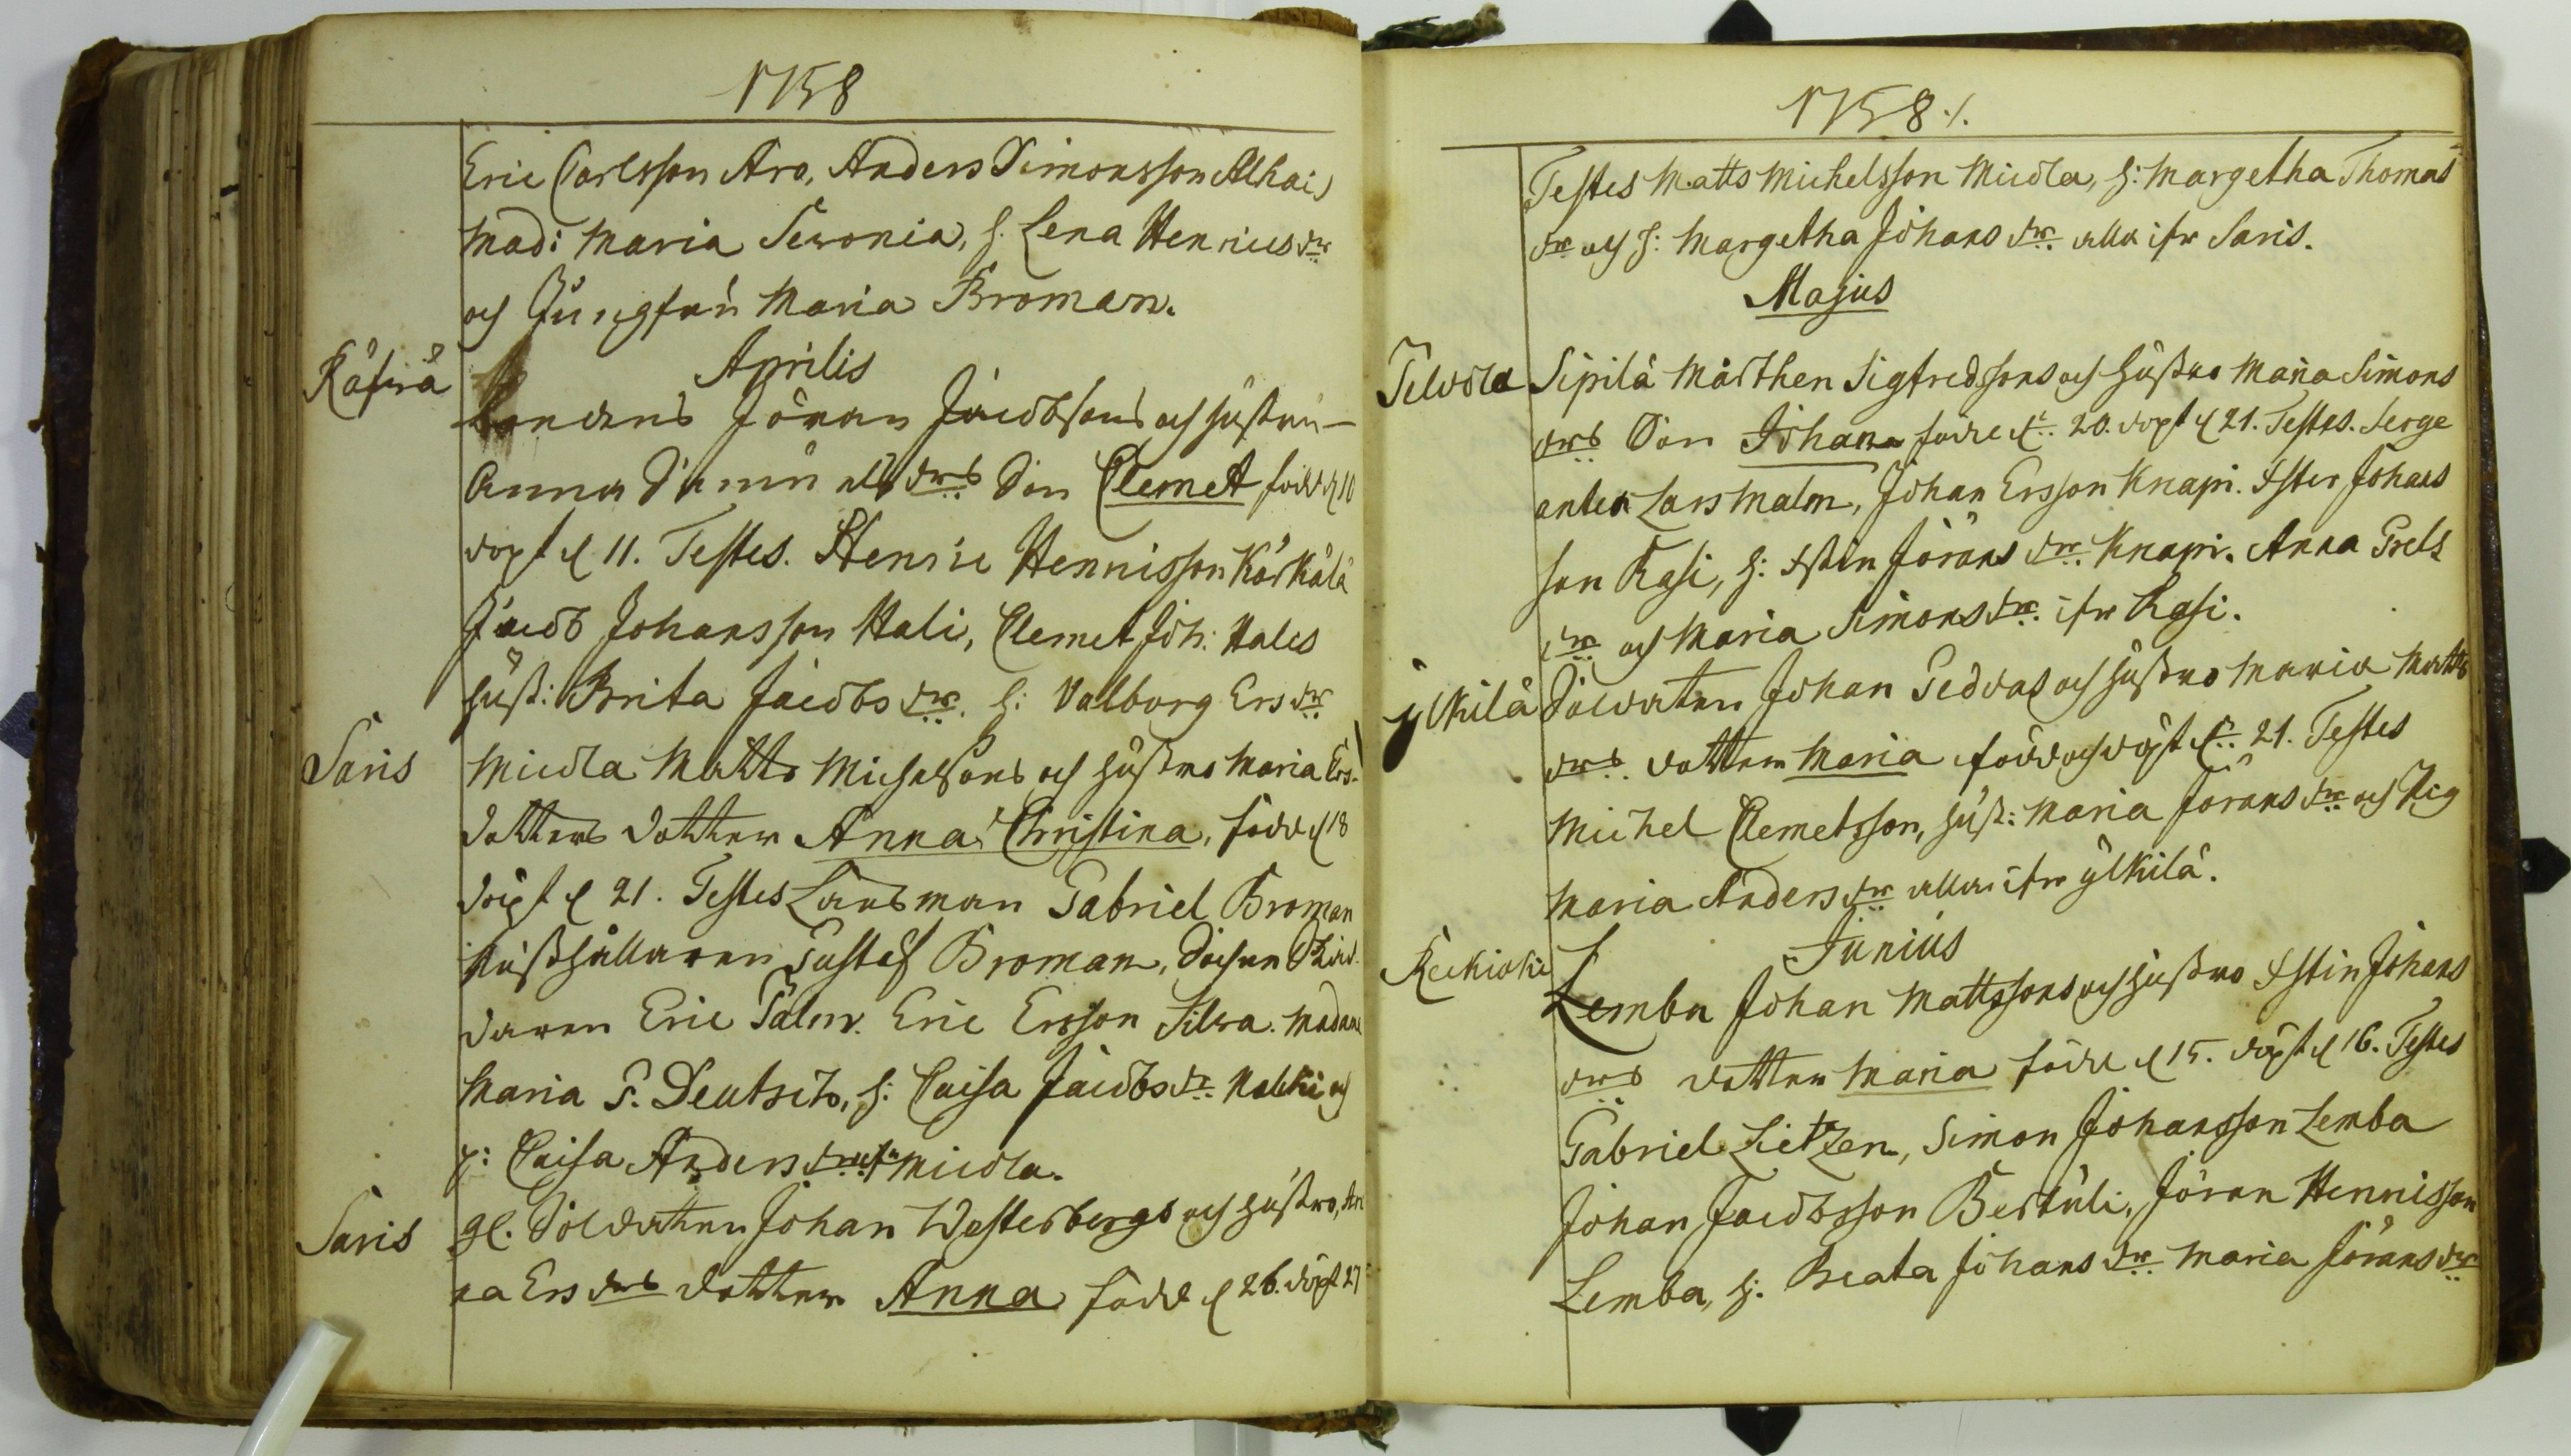 1758
Eric Carlsson Aro, Anders Simonsson Alhais
Mad: Maria Seronia, h. Lena Henrics dr
och Jungfru Maria Broman.
Aprilis
Räfsä
bondens Jöran Jacobsons och hustru
Anna drs Son Clemet född d 10
döpt d 11. Testes. Henric Hennisson Kärkälä
Jacob Johansson Hali, Clemet Joh: Hales
hust: Brita Jacobs dr. h: Valborg Ers dr
Saris
Micola Matts Michelsons och hustrus Maria Ers
dotters dotter Anna Christina, född d 18
döpt d 21. Testes Länsman Gabriel Broman
Rusthållaren Gustaf Broman,
Eric Palm. Eric Ersson Silva. Madame
Maria S. Deutsch, h: Caisa Jacobs dr. och
p: Caisa Anders dr ifr Micola.
Saris
gl. Soldaten Johan Westerbergs och hustrus, An
na Ers drs dotter Anna född d 26. döpt 27
1758./.
Testes Matts Michelsson Micola, h: Margetha Thomas
dr och h: Margetha Johans dr. alla ifr Saris.
Majus
Telvola
Sipilä Mårthen Sigfredssons och hustrus Maria Simons
drs Son Johan född d. 20. döpt d 21. Testes. Serge
anten Lars Malm, Johan Ersson Knapi. Ester Johans
son Rasi, h: Estin Jörans dr. Knapi. Anna Grels
dr. och Maria Simons dr. ifr Rasi.
ylkilä
Soldaten Johan Pedvas och hustrus Maria Matts
drs. dotter Maria född och döpt d. 21. Testes
Michel Clemetsson, hust: Maria Jörans dr och Pig
Maria Anders dr alla ifr ylkilä.
Junius
Keckioki
Lemba Johan Mattssons och hustrus Estin Johans
drs dotter Maria född d 15. döpt d 16. Testes
Gabriel Lietzen, Simon Johansson Lemba
Johan Jacobsson Bertuli, Jöran Hennisson
Lemba, h: Beata Johans dr Maria Jörans dr